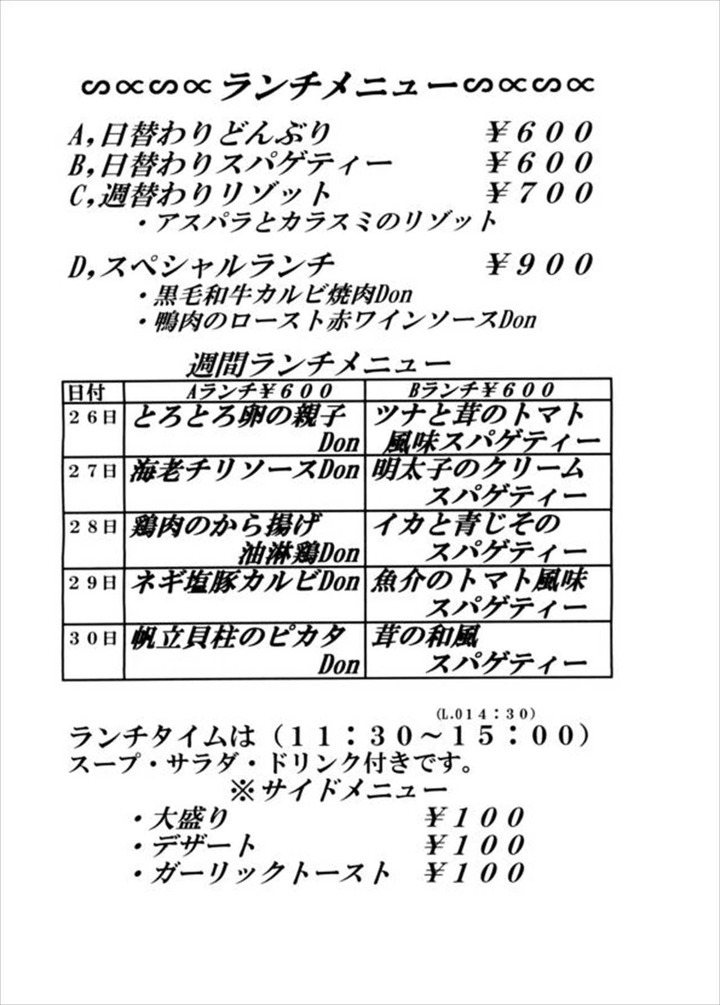 ∽∝∽∝ランチメニュー∽∝∽∝
A,日替わりどんぶり ￥６００
B,日替わりスパゲティー ￥６００
C,週替わりリゾット ￥７００
・アスパラとカラスミのリゾット
D,スペシャルランチ ￥９００
・黒毛和牛カルビ焼肉Don
・鴨肉のロースト赤ワインソースDon
週間ランチメニュー
日付 Aランチ￥６００ Bランチ￥６００
２６日 とろとろ卵の親子 ツナと茸のトマト
Don 風味スパゲティー
２７日 海老チリソースDon 明太子のクリーム
スパゲティー
２８日 鶏肉のから揚げ イカと青じその
油淋鶏Don スパゲティー
２９日 ネギ塩豚カルビDon 魚介のトマト風味
スパゲティー
３０日 帆立貝柱のピカタ 茸の和風
Don スパゲティー
(L.O１４：３０)
ランチタイムは（１１：３０～１５：００）
スープ・サラダ・ドリンク付きです。
※サイドメニュー
・大盛り ￥１００
・デザート ￥１００
・ガーリックトースト ￥１００